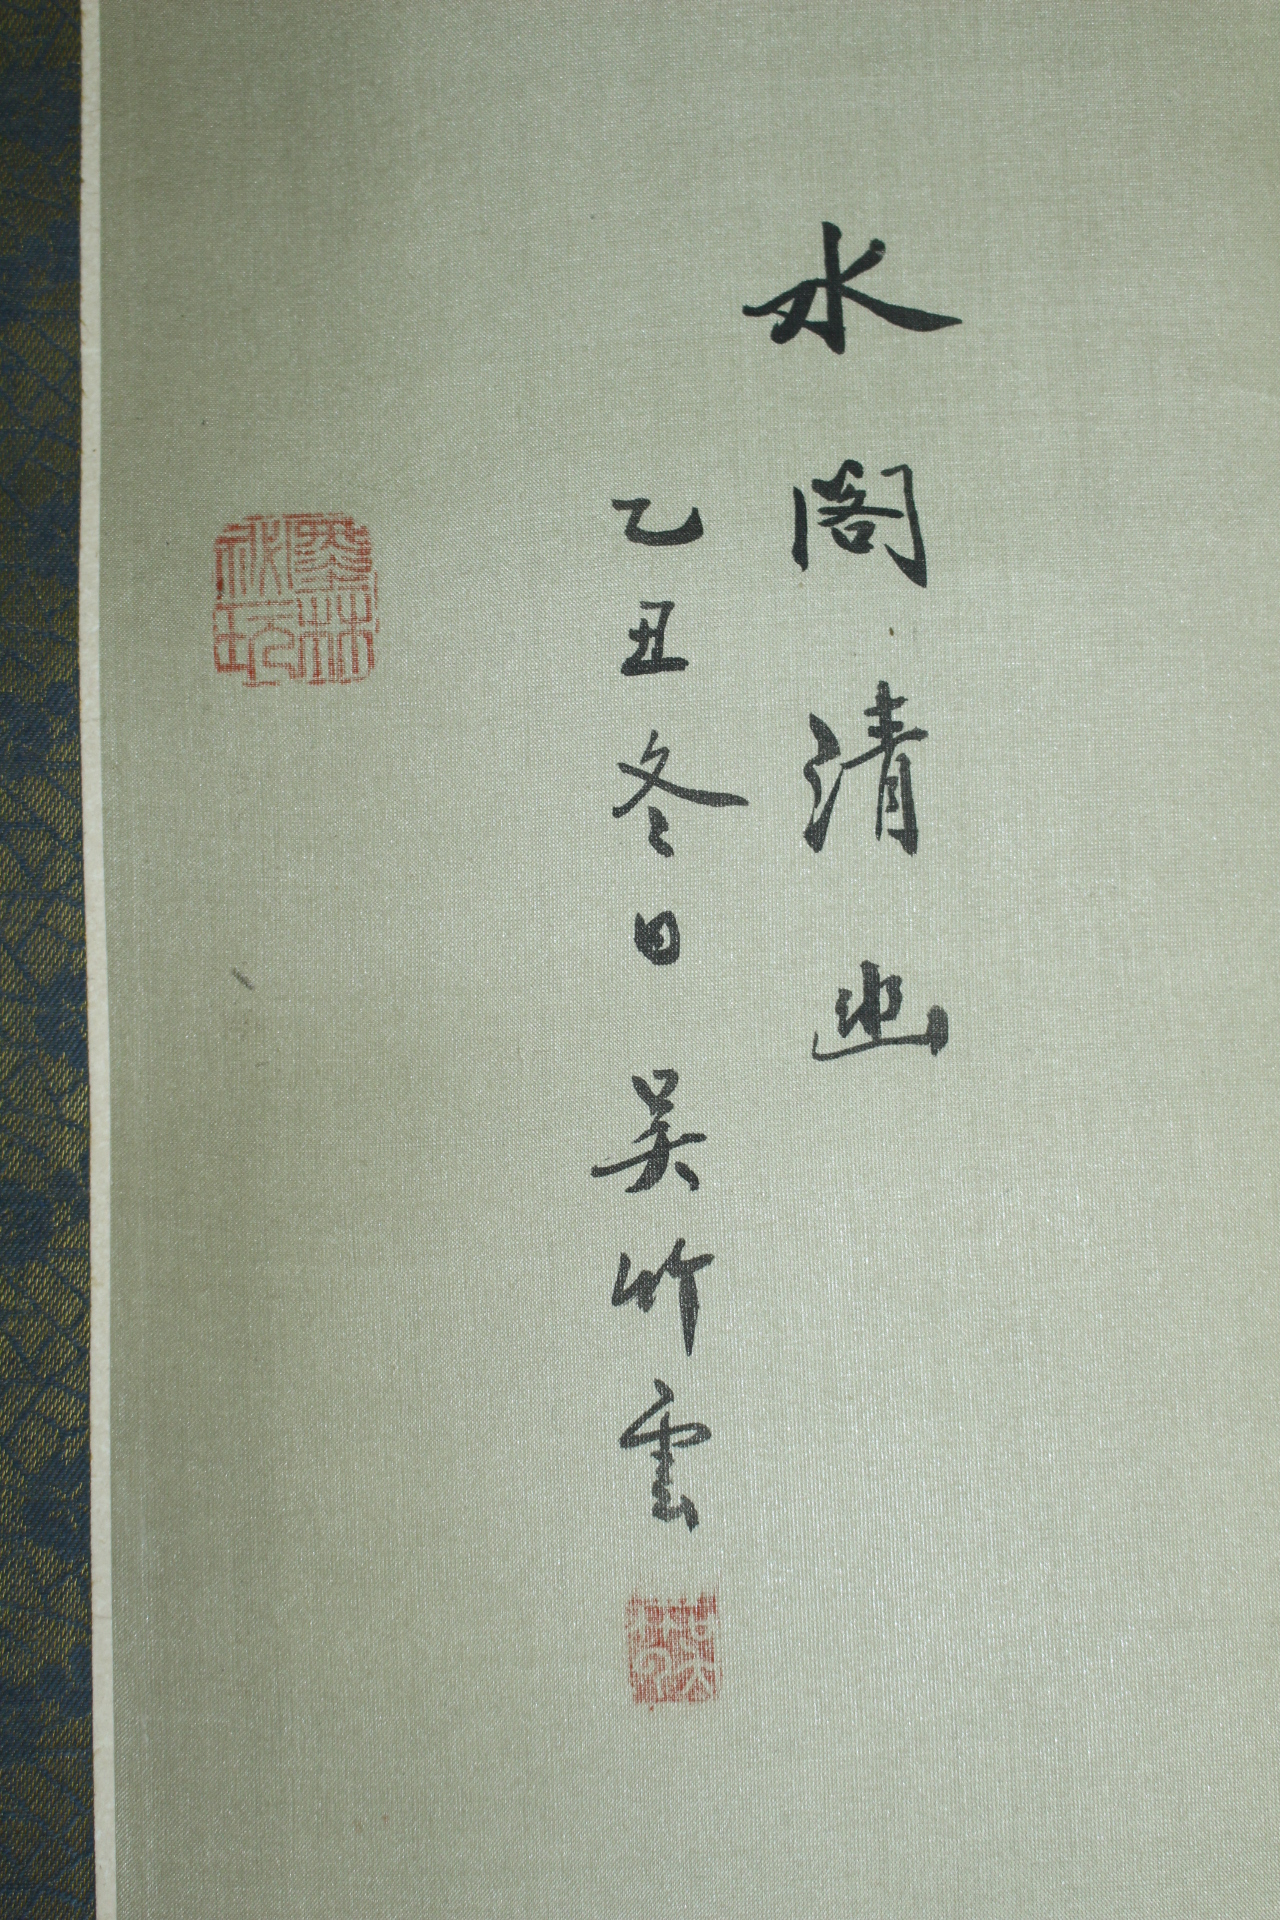 水閣清幽
乙丑冬日吳竹雲